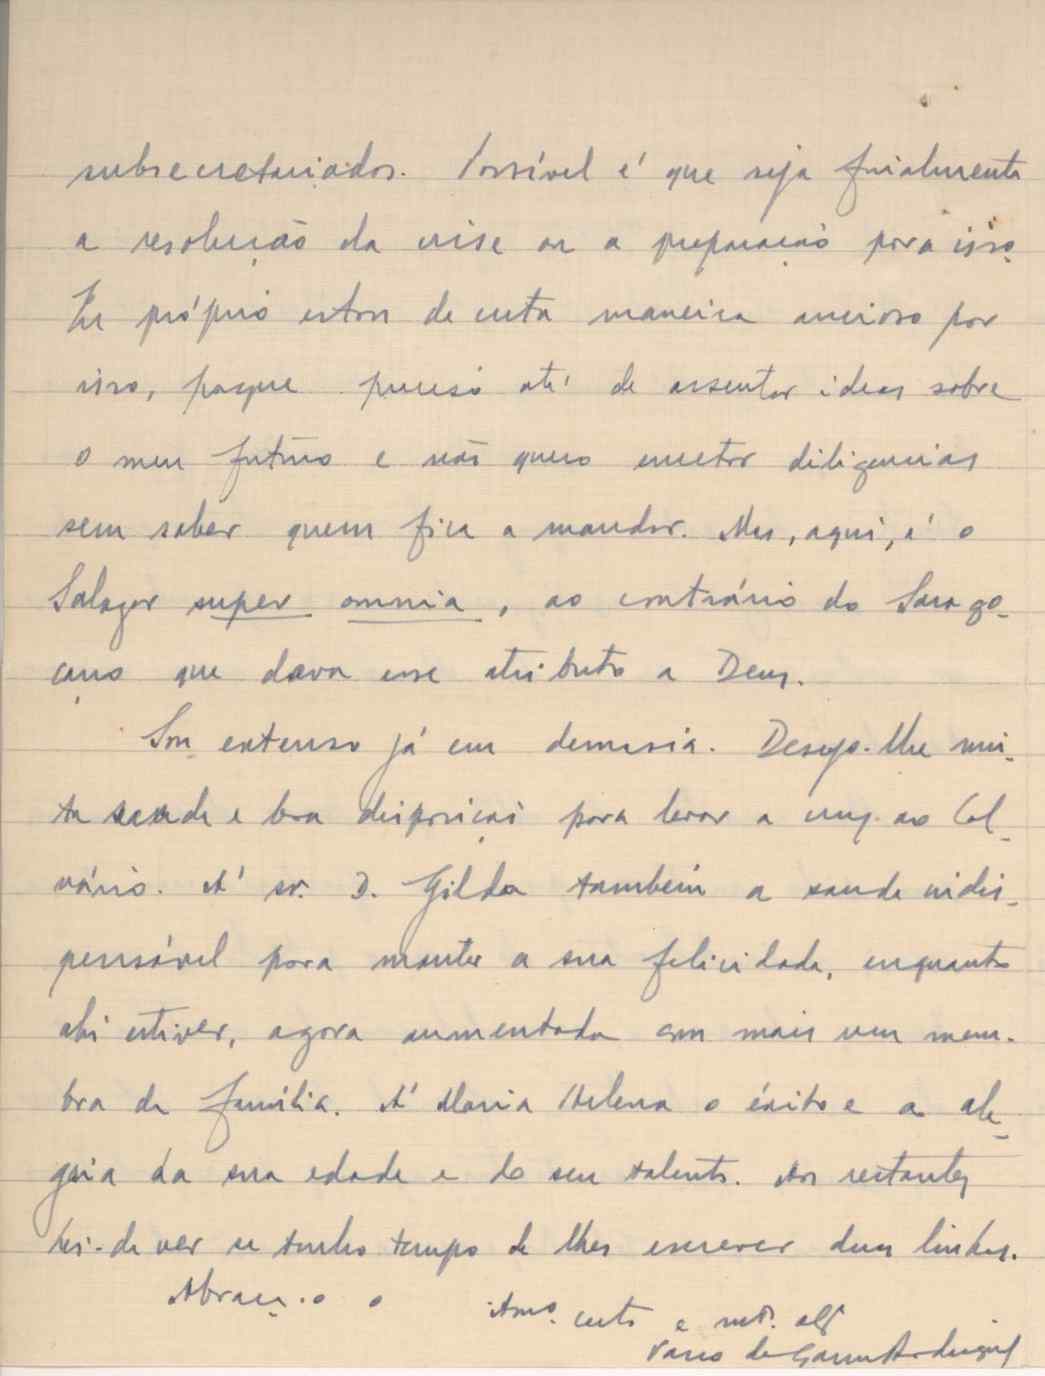 subsecretariados. Possível é que seja finalmente
a resolução da crise ou a preparação para isso.
Eu próprio estou de certa maneira ancioso por
isso, porque preciso até de assentar ideas sobre
o meu futuro e não quero encetar diligencias
sem saber quem fica a mandar. Mas, aqui, é o
Salazar super omnia, ao contrário do Sarago-
çano que dava esse atributo a Deus.
Sou extenso já em demasia. Desejo-lhe mui-
ta saude e boa disposição para levar a cruz ao Cal-
vário. A' sr. D. Gilda também a saude indis-
pensável para manter a sua felicidade, enquanto
ahi estiver, agora aumentada com mais um mem-
bro da família. A' Maria Helena o éxito e a ale-
gria da sua edade e do seu talento. Aos restantes
hei-de ver se tenho tempo de lhes escrever duas linhas.
Abraça-o o
Amo. certo e mto.
Vasco da Gama